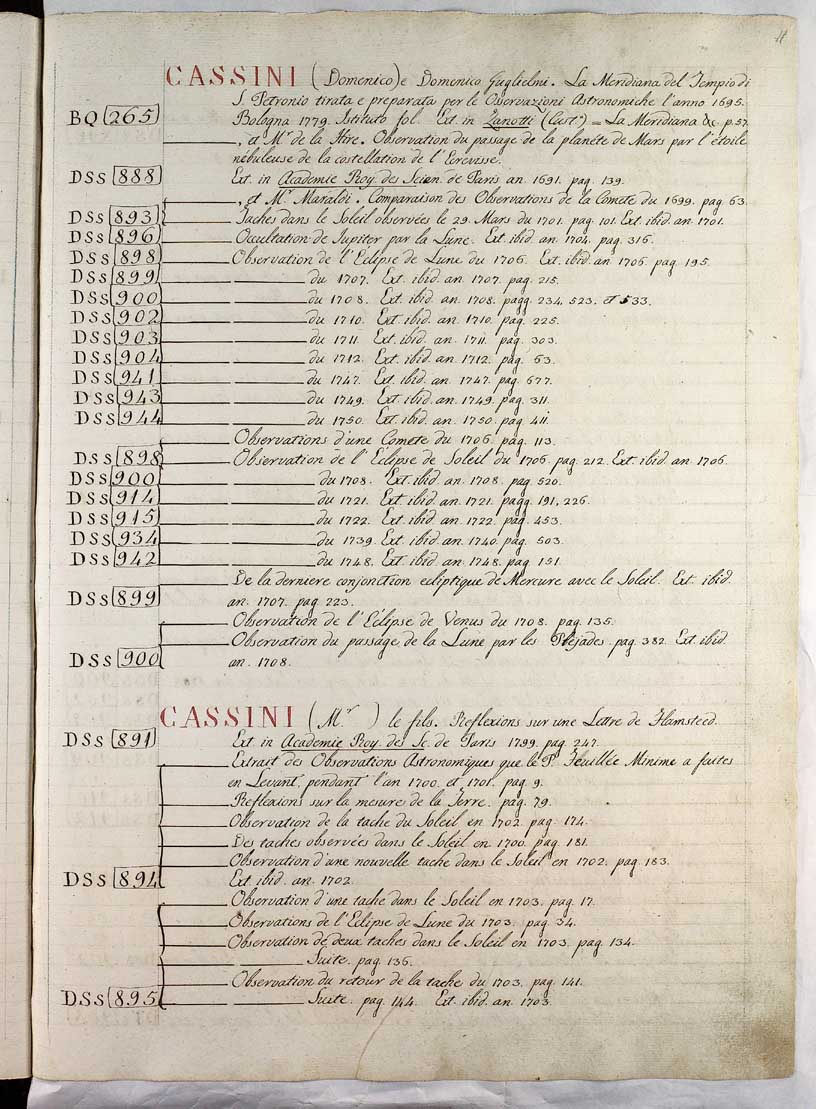 11
CASSINI (Domenico) e Domenico Guglielmi. La Meridiana del Tempio di
S. Petronio tirata e preparata per le Osservazioni Astronomiche l'anno 1695.
BQ 265 Bologna 1779. Istituto fol. Ext. in Zanotti (Eust.°) = La Meridiana &c. p. 57.
, et M.r de la Hire. Observation du passage de la planéte de Mars par l'étoile
nébuleuse de la costellation de l'Ecrevisse.
DSs 888 Ext. in Academie Roy. des Scien. de Paris an. 1691. pag. 139.
, et M.r Maraldi. Comparaison des Observations de la Comete du 1699. pag. 63.
DSs 893 Taches dans le Soleil observées le 29. Mars du 1701. pag. 101. Ext. ibid. an. 1701.
DSs 896 Occultation de Jupiter par la Lune. Ext. ibid. an. 1704. pag. 316.
DSs 898 Observation de l'Eclipse de Lune du 1706. Ext. ibid. an. 1706. pag. 195.
DSs 899 du 1707. Ext. ibid. an. 1707. pag. 215.
DSs 900 du 1708. Ext. ibid. an. 1708. pagg. 234. 523. et 533.
DSs 902 du 1710. Ext. ibid. an. 1710. pag. 225.
DSs 903 du 1711. Ext. ibid. an. 1711. pag. 303.
DSs 904 du 1712. Ext. ibid. an. 1712. pag. 63.
DSs 941 du 1747. Ext. ibid. an. 1747. pag. 677.
DSs 943 du 1749. Ext. ibid. an. 1749. pag. 311.
DSs 944 du 1750. Ext. ibid. an. 1750. pag. 411.
Observations d'une Comete du 1706. pag. 113.
DSs 898 Observation de l'Eclipse de Soleil du 1706. pag. 212. Ext. ibid. an. 1706.
DSs 900 du 1708. Ext. ibid. an. 1708. pag. 520.
DSs 914 du 1721. Ext. ibid. an. 1721. pagg. 191, 226.
DSs 915 du 1722. Ext. ibid. an. 1722. pag. 453.
DSs 934 du 1739. Ext. ibid. an. 1740. pag. 503.
DSs 942 du 1748. Ext. ibid. an. 1748. pag. 151.
De la derniere conjonction ecliptique de Mercure avec le Soleil. Ext. ibid.
DSs 899 an. 1707. pag. 223.
Observation de l'Eclipse de Venus du 1708. pag. 135.
Observation du passage de la Lune par les Plejades. pag. 382. Ext. ibid.
DSs 900 an. 1708.
CASSINI (M.r ) le fils. Reflexions sur une Lettre de Flamsteed.
DSs 891 Ext. in Academie Roy. des Sc. de Paris 1799. pag. 247.
Extrait des Observations Astronomiques que le P. Feuillée Minime a faites
en Levant, pendant l'an 1700. et 1701. pag. 9.
Reflexions sur la mesure de la Terre. pag. 79.
Observation de la tache du Soleil en 1702. pag. 174.
Des taches observées dans le Soleil en 1700. pag. 181.
Observation d'une nouvelle tache dans le Soleil en 1702. pag. 183.
DSs 894 Ext. ibid. an. 1702.
Observation d'une tache dans le Soleil en 1703. pag. 17.
Observations de l'Eclipse de Lune du 1703. pag. 34.
Observation de deux taches dans le Soleil en 1703. pag. 134.
Suite. pag. 136.
Observation du retour de la tache du 1703. pag. 141.
DSs 895 Suite. pag. 144. Ext. ibid. an. 1703.